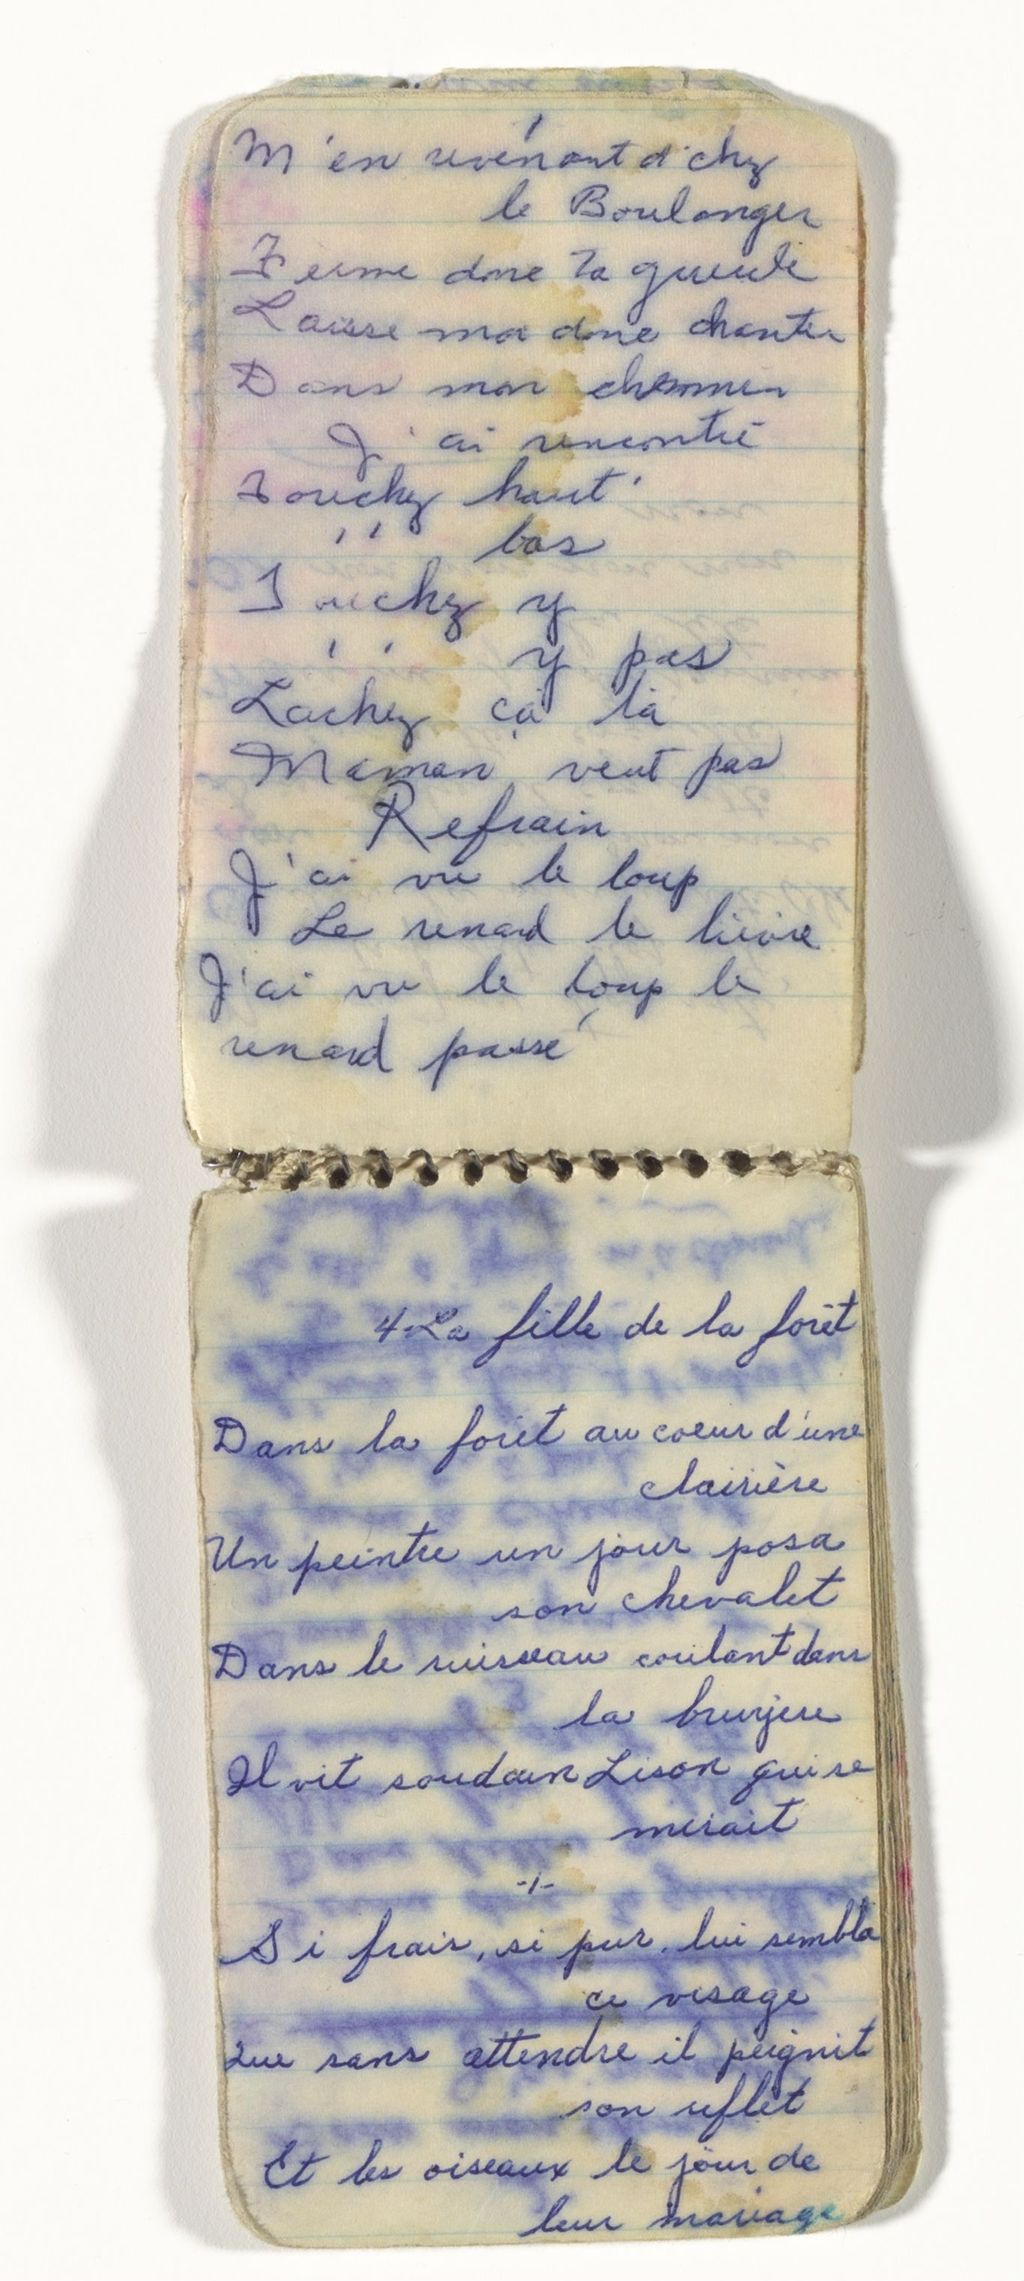 M'en revenant d'chez
le Boulanger
Ferme donc ta gueule
Laisse moi donc chanter
Dans mon chemin
J'ai rencontré
Touchez haut
'' bas
Touchez y
'' y pas
Lachez ça là
Maman veut pas
Refrain
J'ai vu le loup
Le renard le lièvre
J'ai vu le loup le
renard passé
4-La fille de la forêt
Dans la forêt au coeur d'une
clairière
Un peintre un jour posa
son chevalet
Dans le ruisseau coulant dans
la bruyère
Il vit soudain Lison qui se
mirait
-1-
Si frais, si pur, lui sembla
ce visage
Que sans attendre il peignit
son reflet
Et les oiseaux le jour de
leur mariage